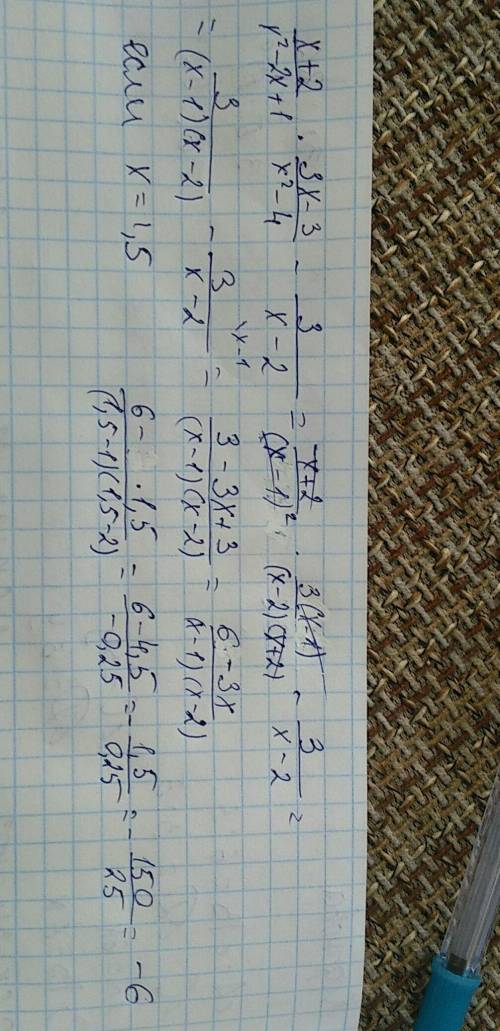 x+2/x²-2x+1 · 3x-3/x²-4 - 3/x-2 = x+2/(x-1)² · 3(x-1)/(x-2)(x+2) - 3/x-2 =
= 3/(x-1)(x-2) - 3/x-2 \x-1 = 3-3x+3/(x-1)(x-2) = 6-3x/x-1)(x-2)
если x = 1,5 6- ·1,5/(1,5-1)(1,5-2) = 6-4,5/-0,25 = - 1,5/0,25 = - 150/25 = -6